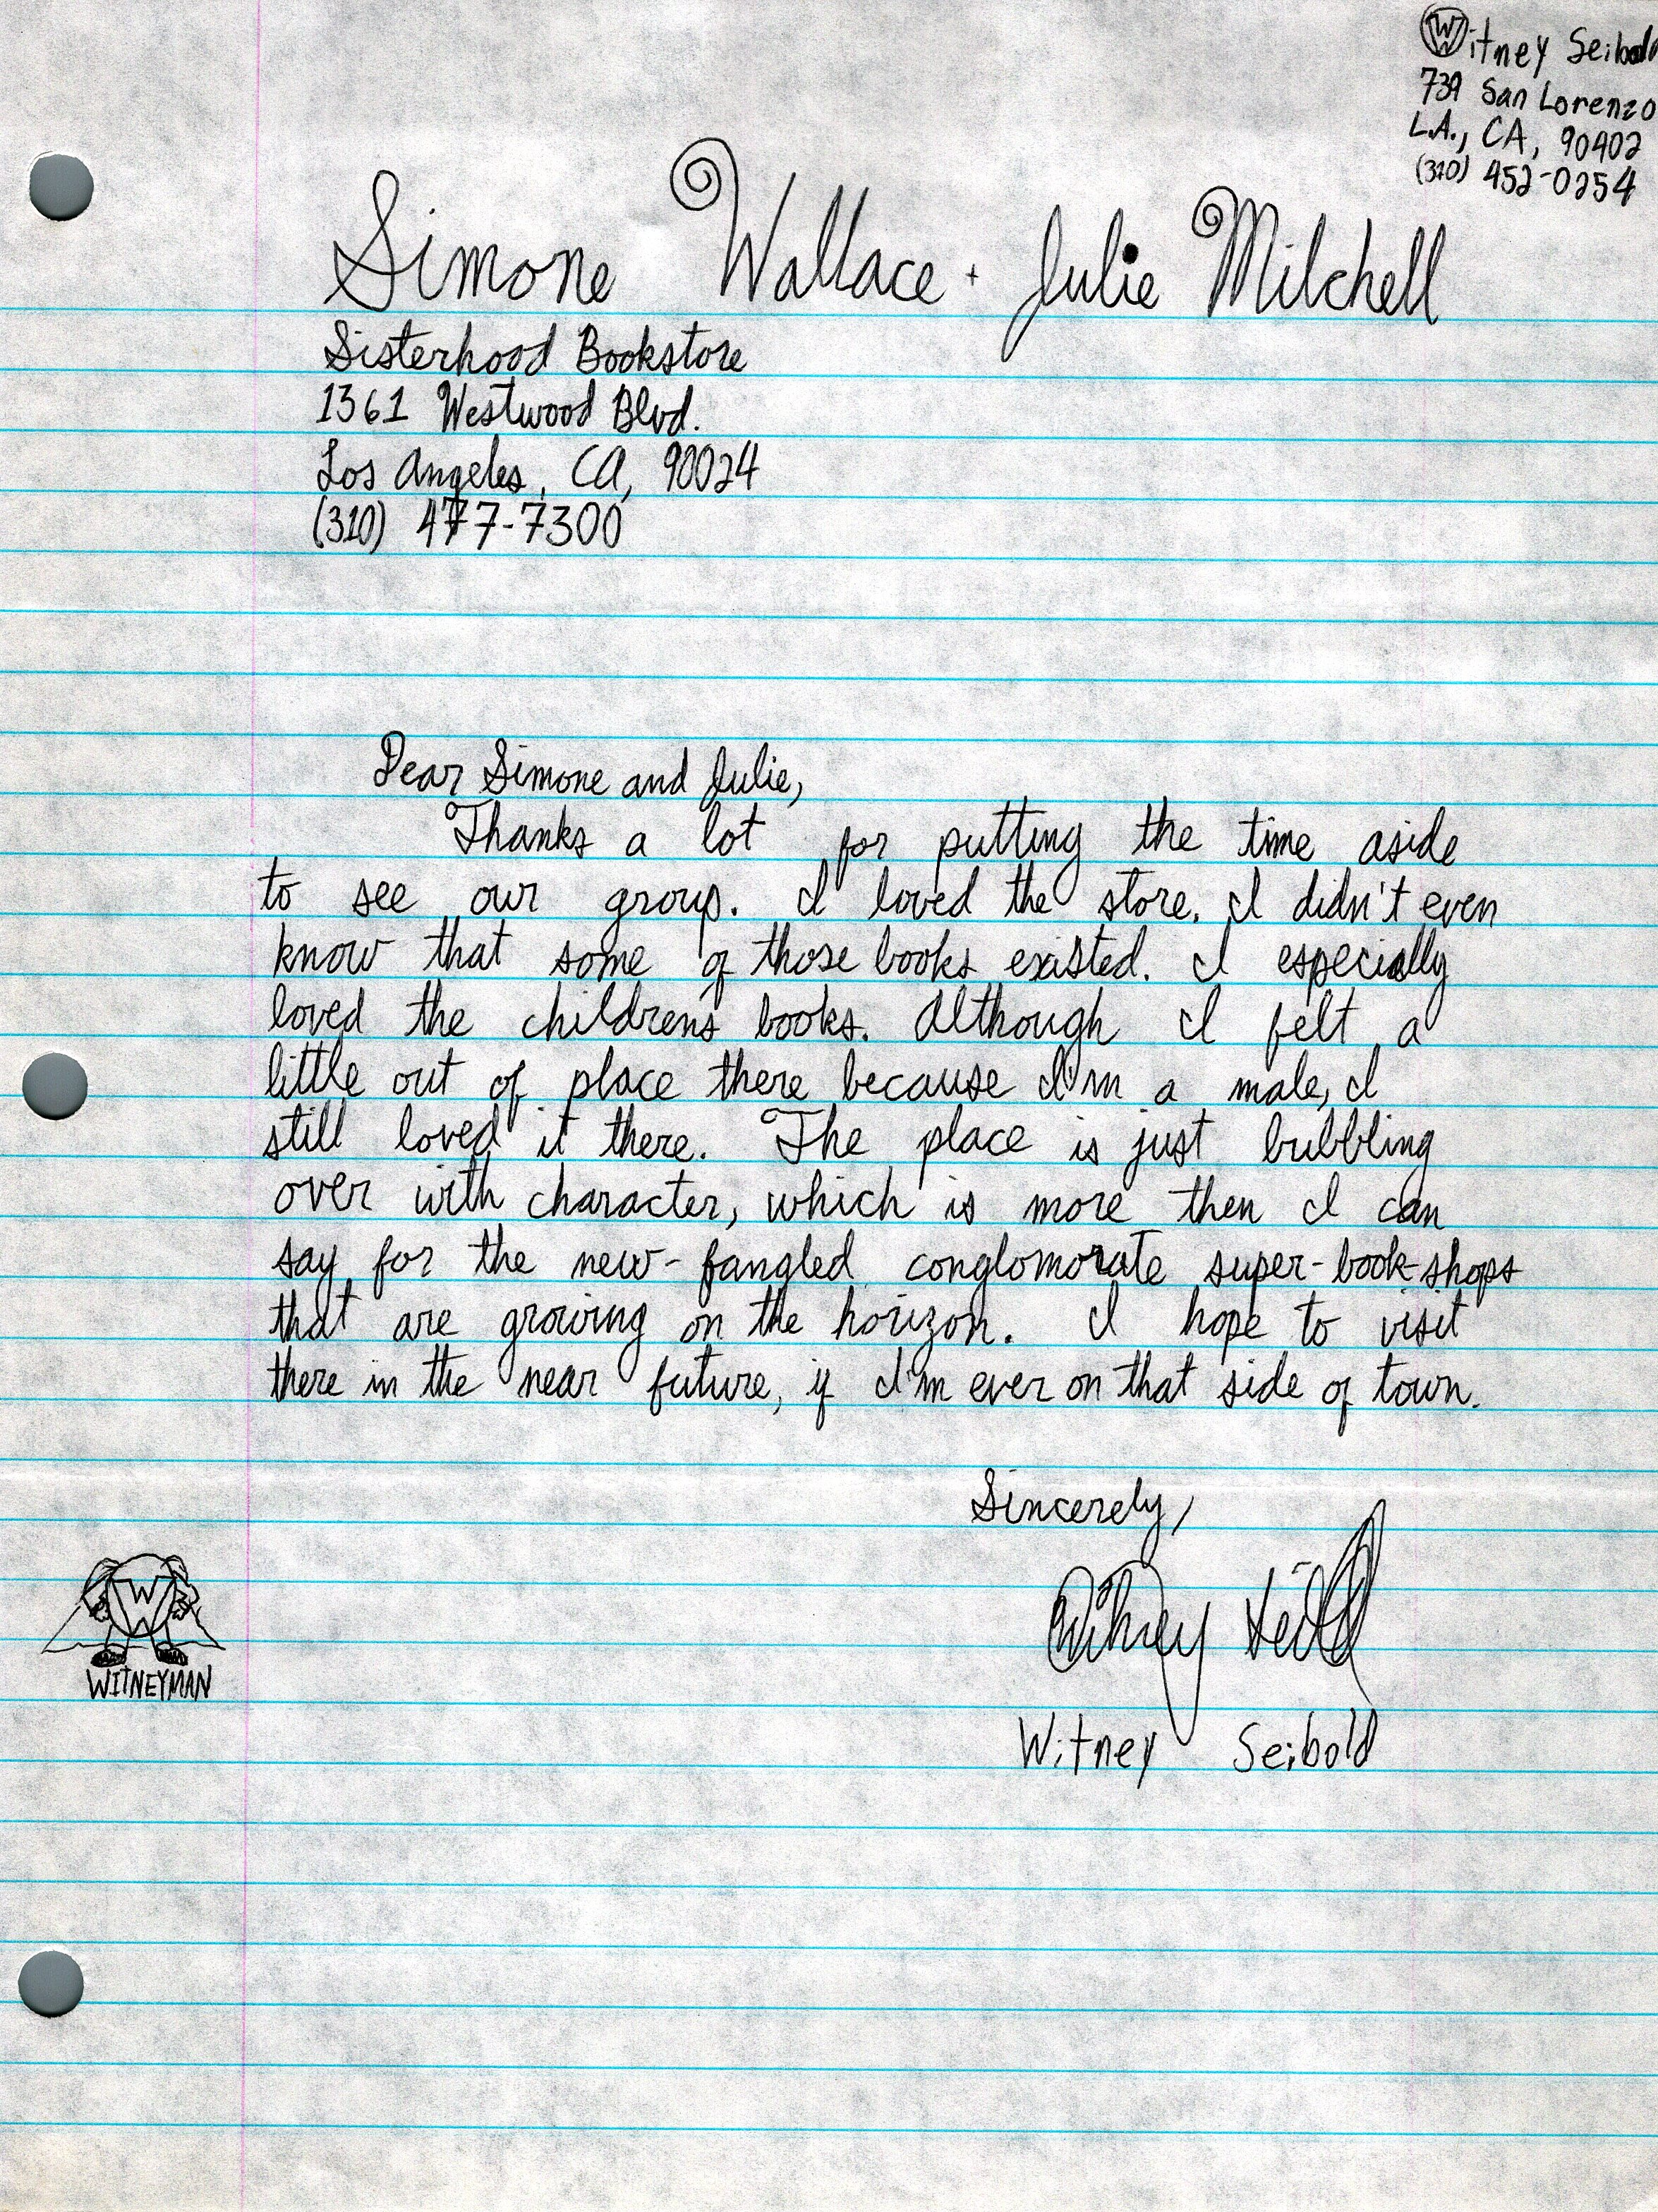 Witney Seibold
739 San Lorenzo
L.A., CA, 90402
(310) 452-0254
Simone Wallace + Julie Mitchell
Sisterhood Bookstore
1361 Westwood Blvd.
Los Angeles, CA, 90024
(310) 477-7300
Dear Simone and Julie,
Thanks a lot for putting the time aside
to see our group. I loved the store. I didn't even
know that some of those books existed. I especially
loved the childrens books. Although I felt a
little out of place there because I'm a male, I
still loved it there. The place is just bubbling
over with character, which is more then I can
say for the new-fangled conglomorate super-book-shops
that are growing on the horizon. I hope to visit
there in the near future, if I'm ever on that side of town.
Sincerely,
Witney Seibold
W
WITNEYMAN
Witney Seibold